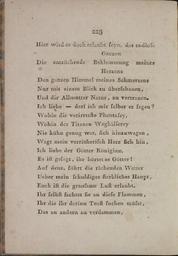 223
Hier wird es doch erlaubt seyn, das endlose
Ganzen
Die entzückende Beklemmung meines
Herzens
Den ganzen Himmel meines Schmerzens
Nur mit einem Blick zu übersehauen,
Und die Allmutter Natur, zu vertrauen.
Ich liebe — darf ich mir selber es sagen?
Wohin die verirrteste Phantasey,
Wohin der Titanen
Nie kühn genug war, sich hinzuwagen,
Wagt mein vermessenes Herz sich hin.
Ich liebe der Götter Königinn.
Es ist gesagt, ihr hörtet es Götter!
Auf denn, führt die rächenden Wetter
Ueber mein schuldiges sterbliches Haupt,
Euch ist die grausame Lust erlaubt.
Ihr selbst fachtet sie an diese Flammen,
Ihr die ihr deinen Trost suchen müsst,
Das an andern zu verdammen,